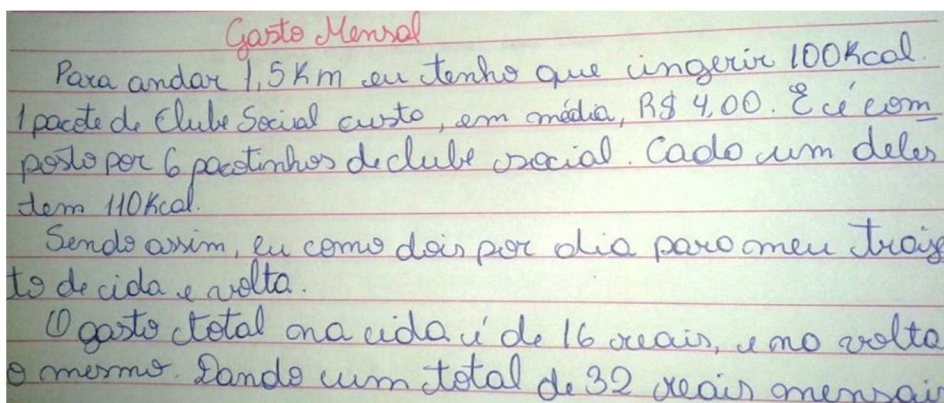 Gasto Mensal
Para andar 1,5Km eu tenho que ingerir 100Kcal.
1 pacote de Clube Social custo, em média, R$ 4,00. E é com
posto por 6 pacotinhos de clube social. Cada um deles
tem 110Kcal.
Sendo assim, eu como dois por dia para meu traje
to de ida e volta.
O gasto total na ida é de 16 reais, e na volta
o mesmo. Dando um total de 32 reais mensais